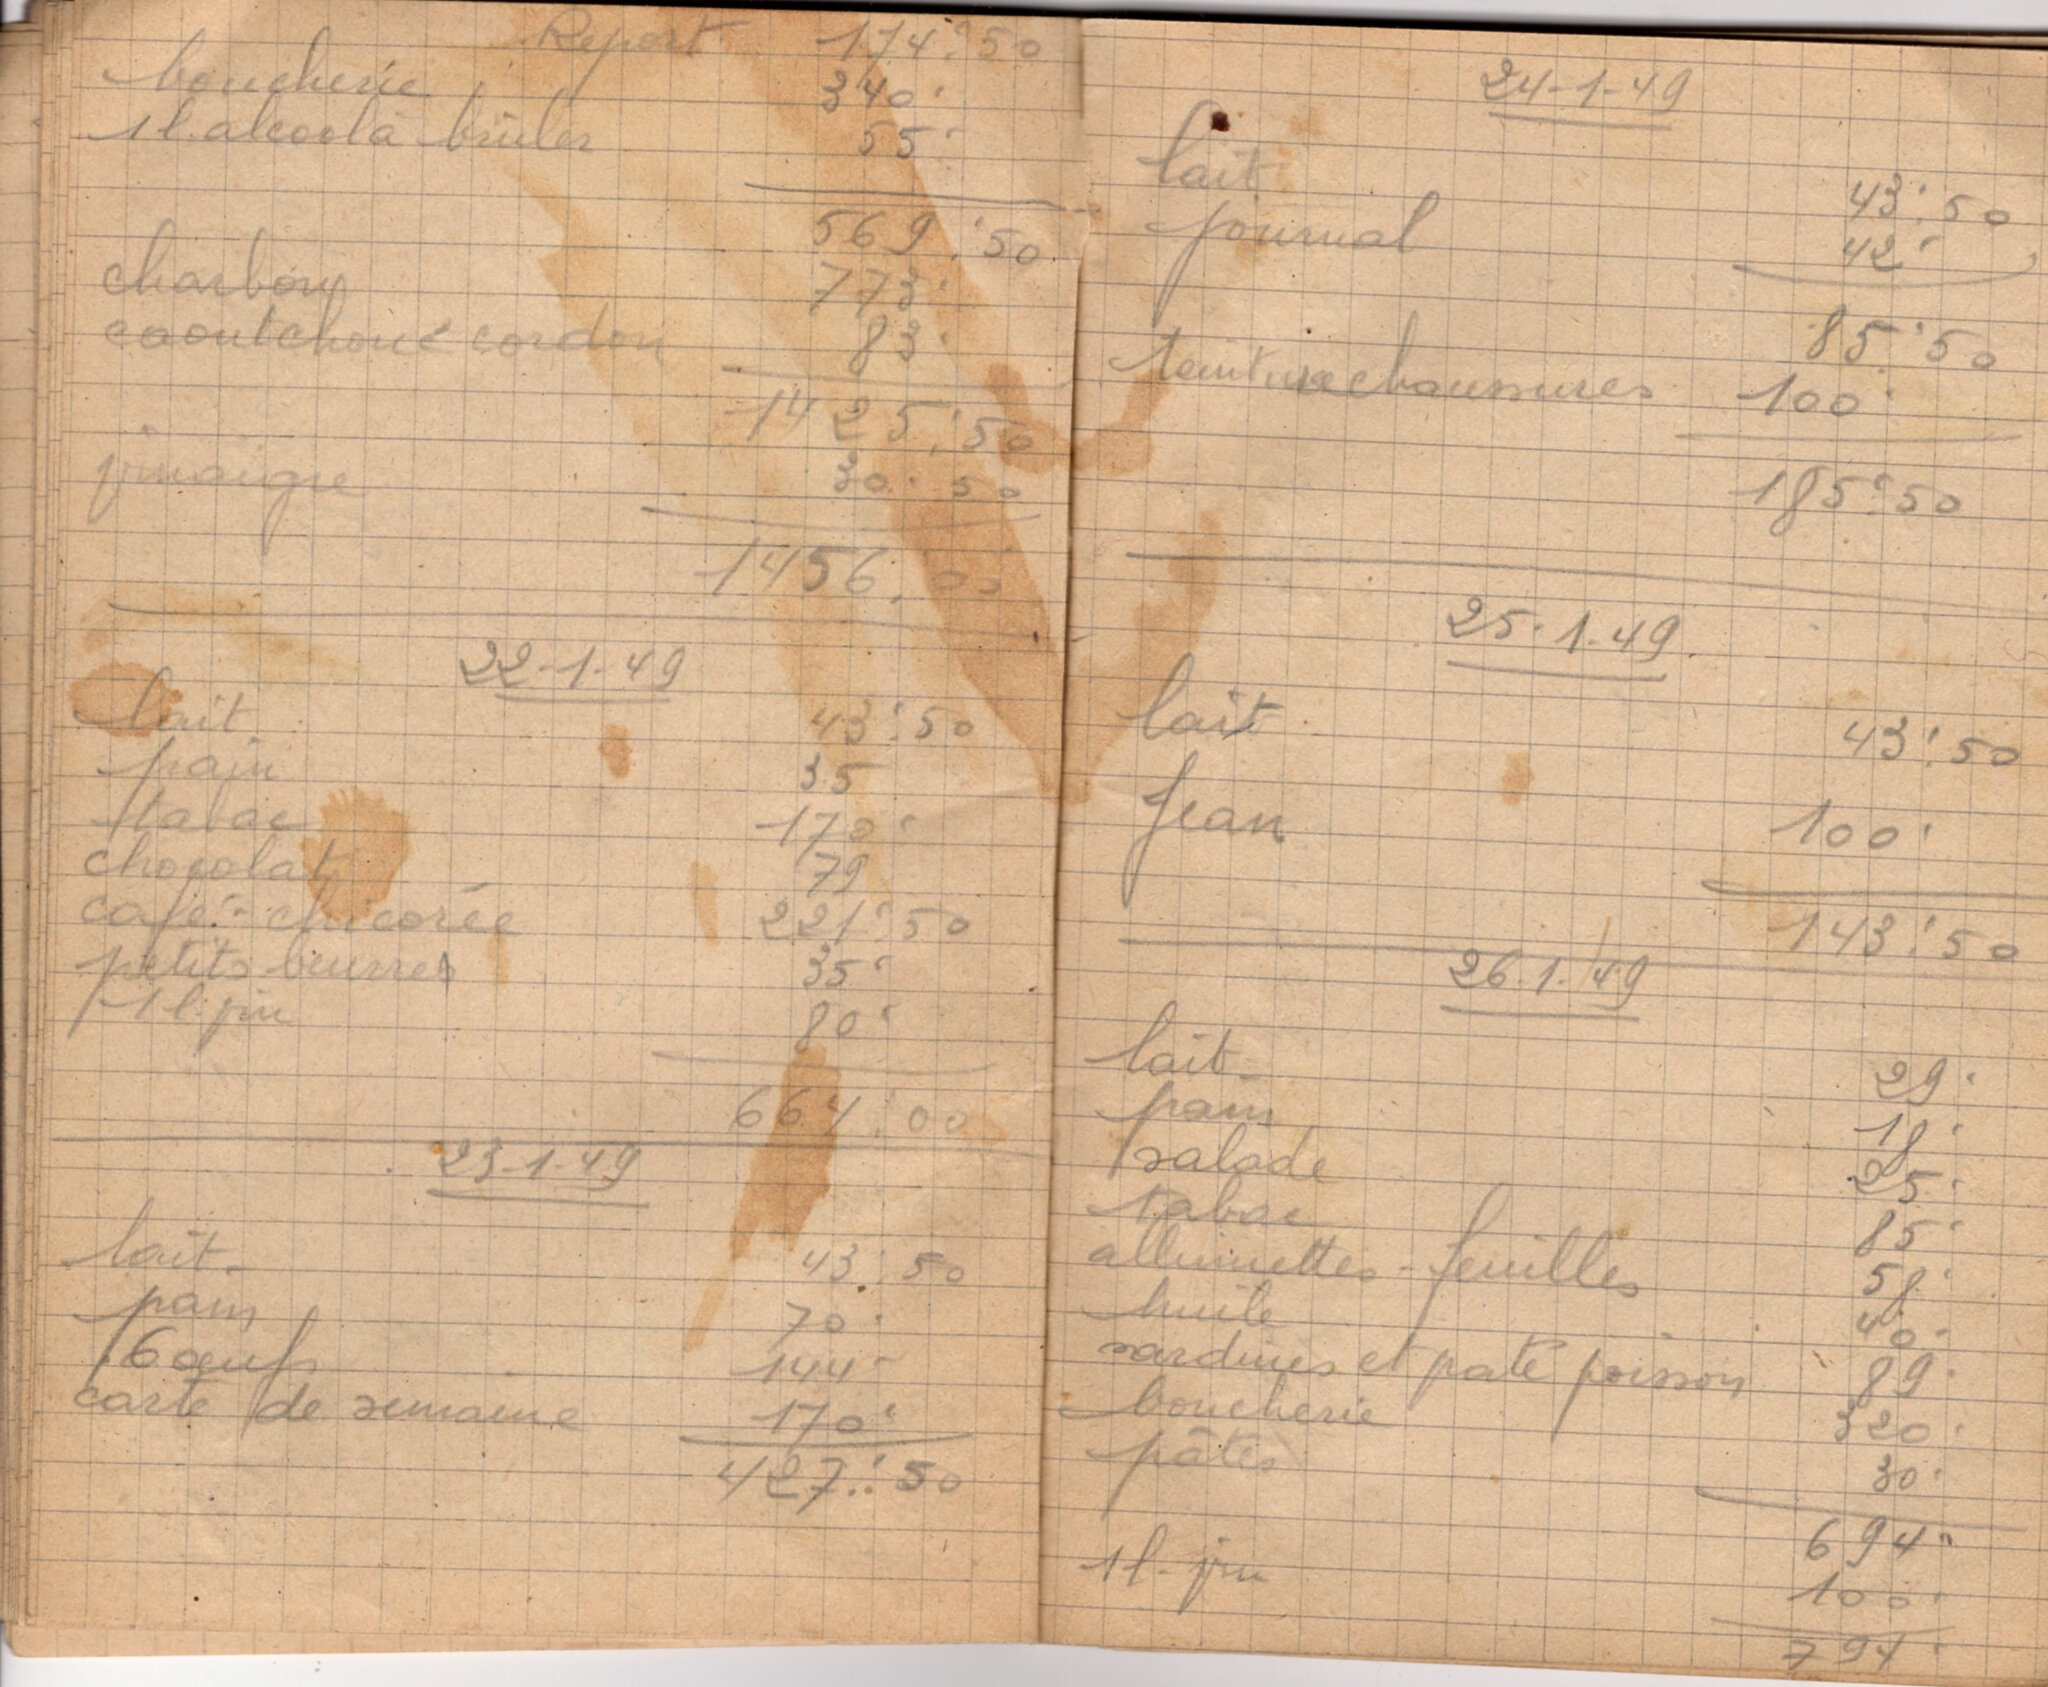 Report 174:50
boucherie 340:
1 l. alcool à brûler 55:
569:50
charbon 773:
caoutchouc cordon 83:
1425:50
vinaigre 30:50
1456.00
22-1-49
lait 43:50
pain 35
tabac 170:
chocolat 79
café-chicorée 221:50
petits beurres 35:
1 l. vin 80:
664:00
23-1-49
lait 43:50
pain 70:
6 œufs 144:
carte de semaine 170:
427:50
24-1-49
lait 43:50
journal 42:
85:50
teinture chaussures 100:
185:50
25-1-49
lait 43:50
Jean 100:
143:50
26.1.49
lait 29:
pain 18:
salade 25:
tabac 85:
allumettes - feuilles 58:
huile 40:
sardines et pate poisson 89:
boucherie 320:
pâtes 30:
694:
1 l. vin 100:
794: